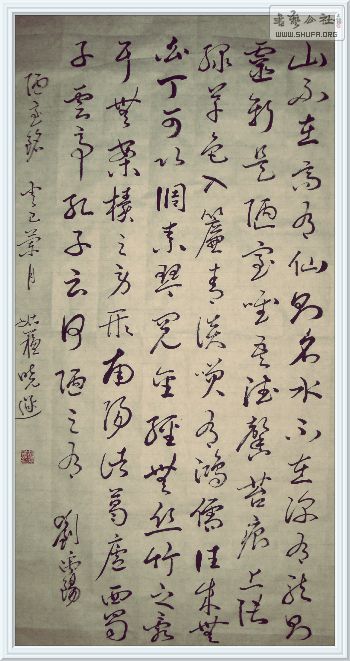 书艺公社
WWW.SHUFA.ORG
山不在高有仙则名水不在深有龙则
靈斯是陋室唯吾德馨苔痕上階
绿草色入簾青談笑有鴻儒往来無
白丁可以调素琴閲金經無丝竹之乱
耳無案牍之劳形南陽诸葛廬西蜀
子雲亭孔子云何陋之有 劉禹錫
陋室銘 癸巳蘭月